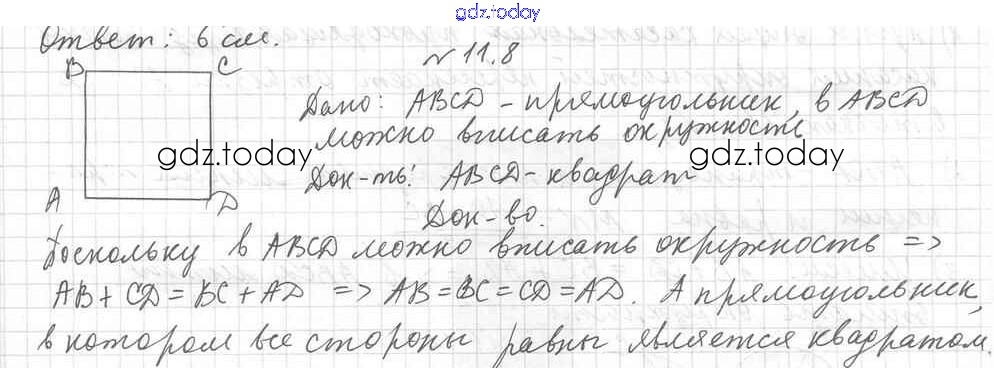 gdz.today
Ответ: 6 см.
№ 11.8
B C
Дано: ABCD - прямоугольник, в ABCD
можно вписать окружность
gdz.today gdz.today
Док-ть: ABCD - квадрат
A D
Док-во.
Поскольку в ABCD можно вписать окружность =>
AB + CD = BC + AD => AB = BC = CD = AD. А прямоугольник,
в котором все стороны равны является квадратом.